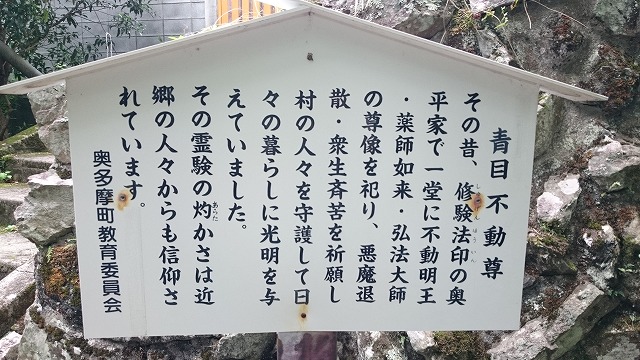 青目不動尊
その昔、修験法印の奥
平家で一堂に不動明王
・薬師如来・弘法大師
の尊像を祀り、悪魔退
散・衆生斉苦を祈願し
村の人々を守護して日
々の暮らしに光明を与
えていました。
その霊験の灼かさは近
郷の人々からも信仰さ
れています。
奥多摩町教育委員会